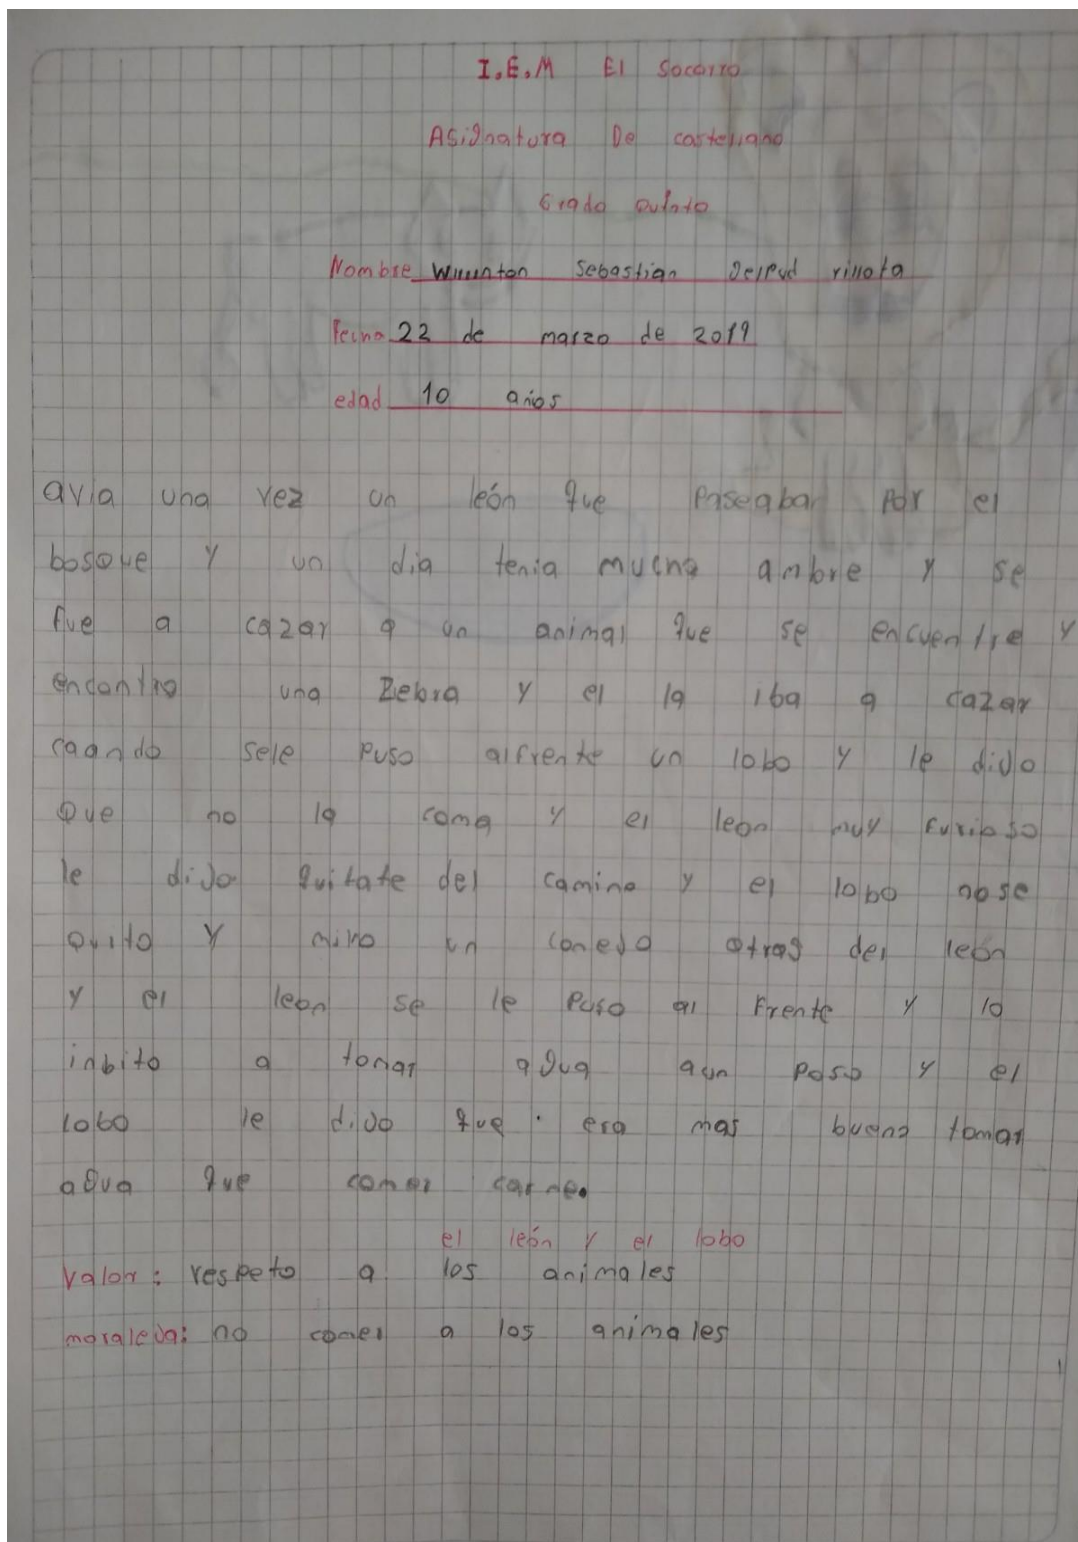 I.E.M El Socorro
Asignatura De castellano
Grado quinto
Nombre Sebastian
Fecha 22 de marzo de 2019
edad 10 años
avia una vez un león que paseaba por el
bosque y un dia tenia mucha ambre y se
fue a cazar a un animal que se encuentre y
encontro una Zebra y el la iba a cazar
cuando sele puso alfrente un lobo y le dijo
que no la coma y el leon muy furioso
le dijo quitate del camino y el lobo nose
quito y miro un conejo atras del león
y el leon se le puso al frente y lo
inbito a tomar agua aun poso y el
lobo le dijo que era mas bueno tomar
agua que comer carne.
el león y el lobo
valor: respeto a los animales
moraleja: no comer a los animales